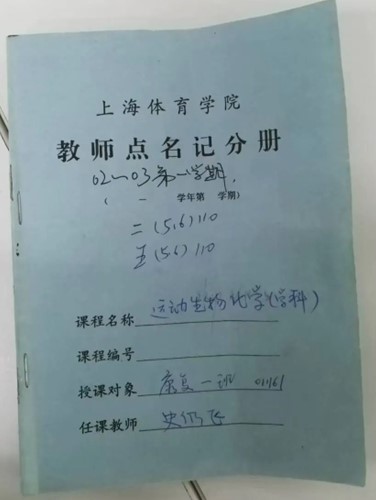 上海体育学院
教师点名记分册
02～03第一学期
( — 学年第 学期)
二(5,6)110
五(56)110
课程名称 运动生物化学(学科)
课程编号
授课对象 康复一班
任课教师 史仍飞